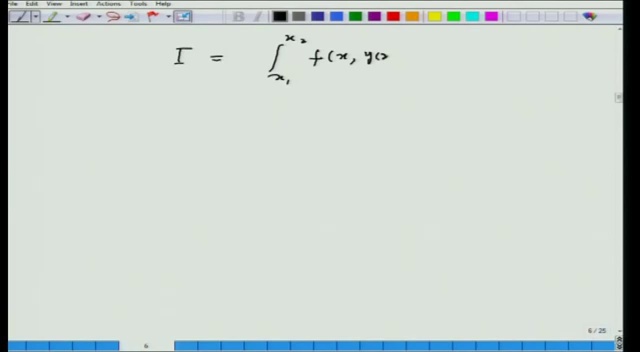 File Edit View Insert Actions Tools Help
I = ∫_{x₁}^{x₂} f(x, y(x
6 / 25
6